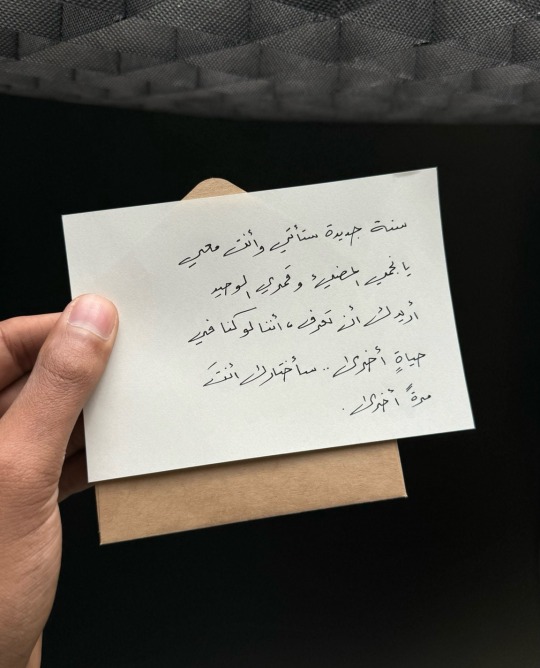 سنة جديدة ستأتي وأنت معي
يا نجمي المضيء وقمري الوحيد
أريدك أن تعرف، أننا لو كنا في
حياةٍ أخرى .. سأختارك أنتَ
مرةً أخرى .